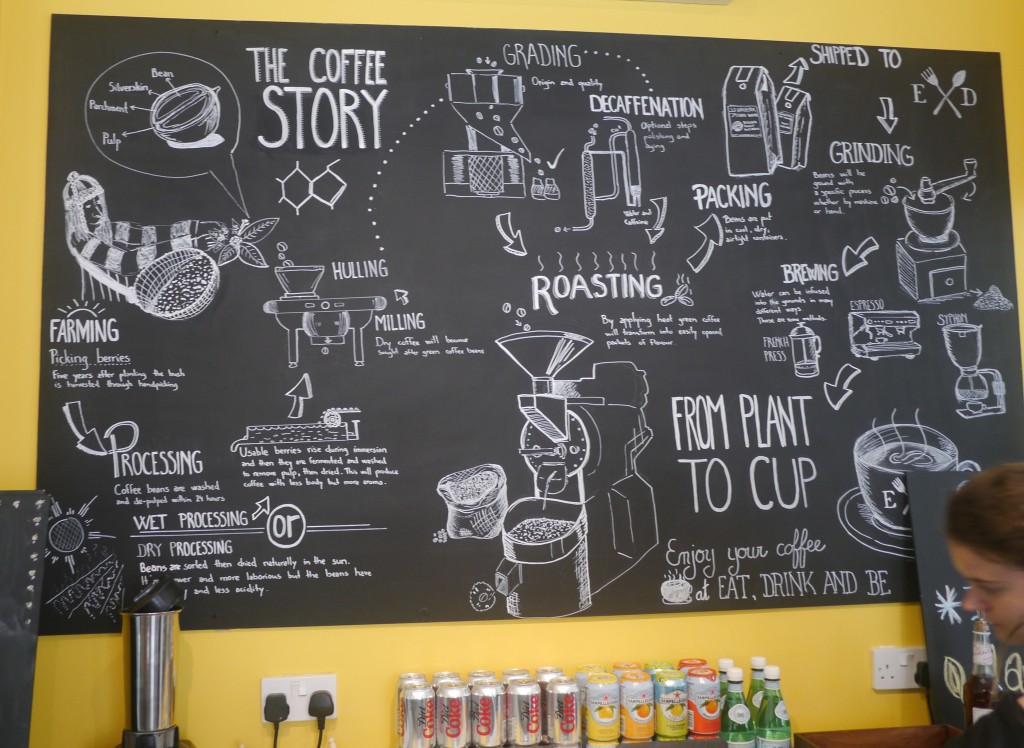 THE COFFEE
STORY
Bean
Silverskin
Parchment
Pulp
FARMING
Picking berries
Five years after planting the bush
is harvested through handpicking
PROCESSING
Coffee beans are washed
and de-pulped within 24 hours
WET PROCESSING
or
DRY PROCESSING
Beans are sorted then dried naturally in the sun.
and more laborious but the beans have
and less acidity.
Usable berries rise during immersion
and then they are fermented and washed
to remove pulp, then dried. This will produce
coffee with less body but more aroma.
HULLING
MILLING
Dry coffee will become
sought after green coffee beans
GRADING
Origin and quality
DECAFFENATION
Optional steps
polishing and
drying
Water and
Caffeine
ROASTING
By applying heat green coffee
will transform into easily opened
pockets of flavour.
PACKING
Beans are put
in cool, dry,
airtight containers.
SHIPPED TO
E D
GRINDING
Beans will be
ground with
a specific process
whether by machine
or hand.
BREWING
Water can be infused
into the grounds in many
different ways
These are some methods.
FRENCH
PRESS
ESPRESSO
SYPHON
FROM PLANT
TO CUP
E
Enjoy your coffee
at EAT, DRINK AND BE
Diet
Coke
Diet
Coke
Coke
Coke
Coke